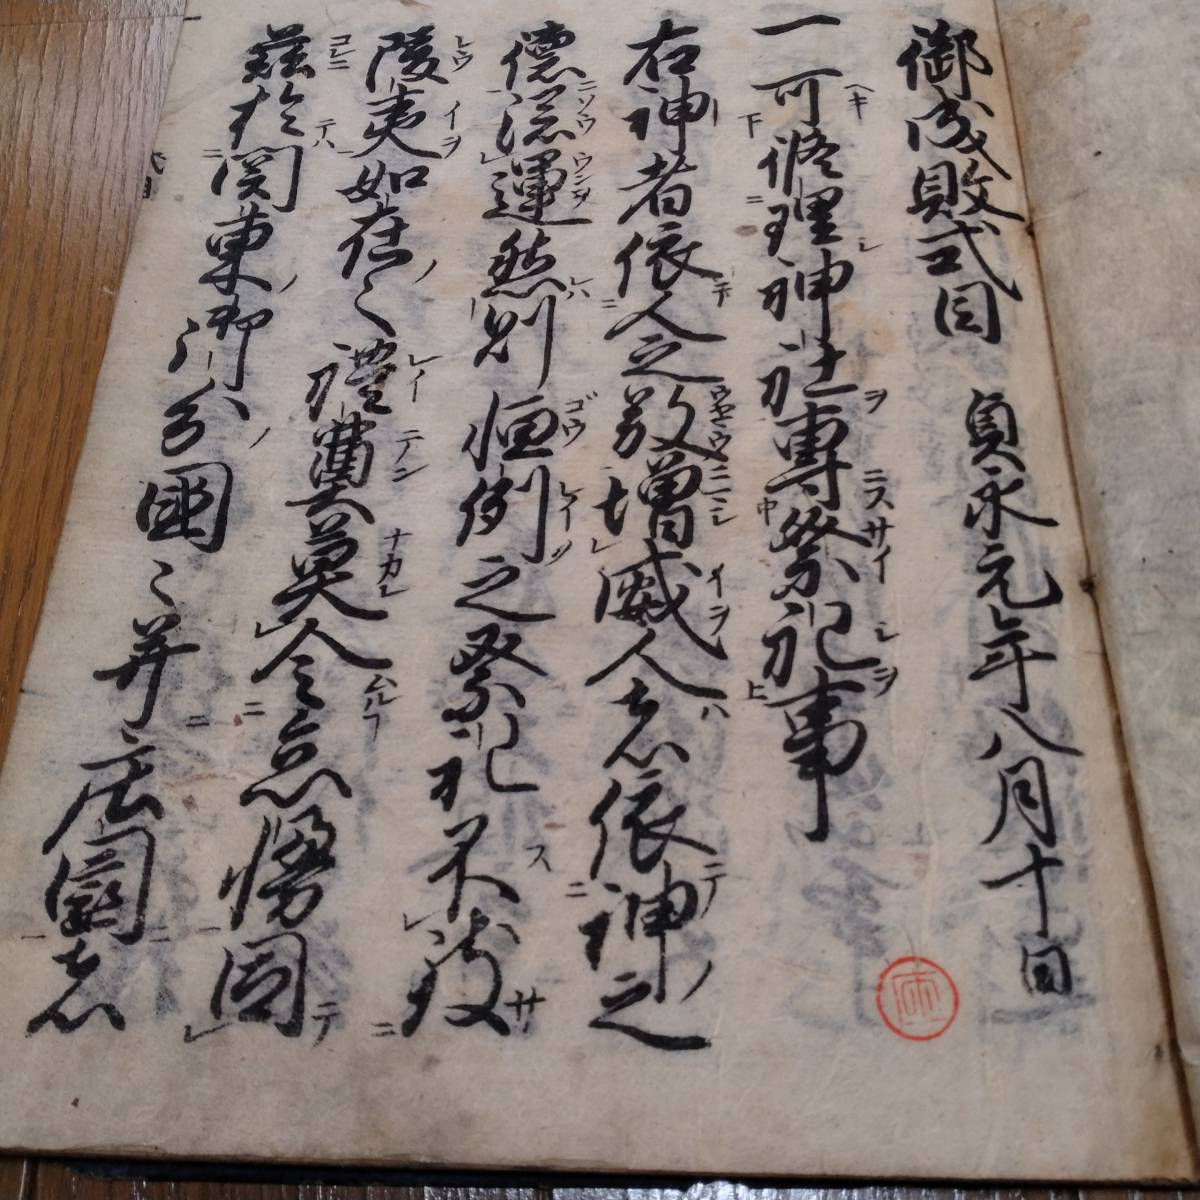 御成敗式目 貞永元年八月十日
一可修理神社專祭祀事
右神者依人之敬增威人者依神之
德添運然則恒例之祭祀不致
陵夷如在之禮奠莫令怠慢因
茲於関東御分國々并庄薗者